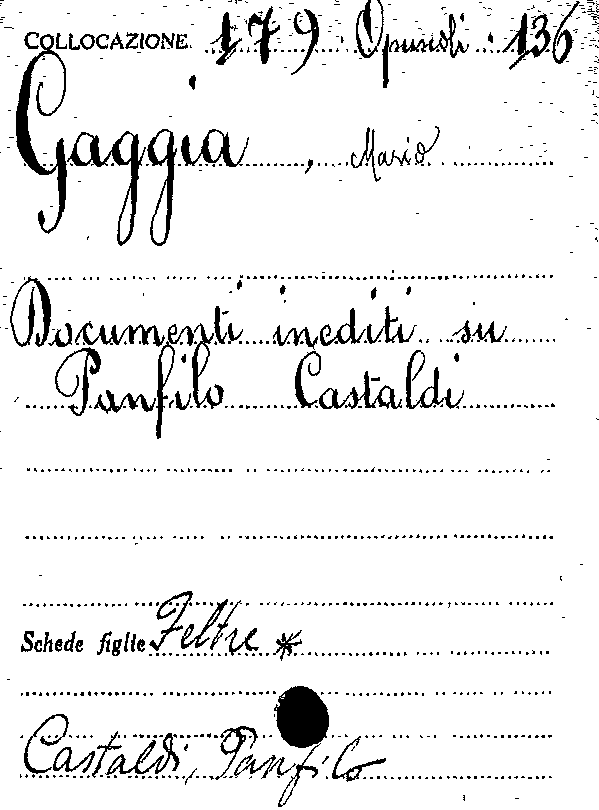 COLLOCAZIONE 179 Opuscoli. 136
Gaggia, Mario
Documenti inediti su
Panfilo Castaldi
Schede figlie Feltre *
Castaldi, Panfilo